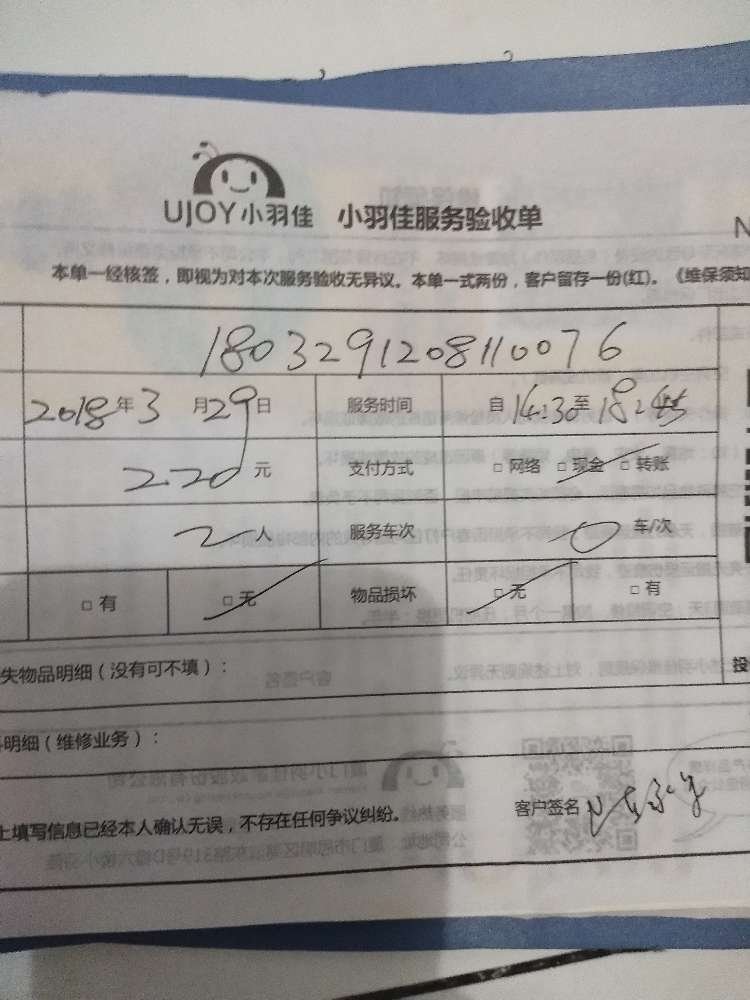 UJOY小羽佳 小羽佳服务验收单
N
本单一经核签，即视为对本次服务验收无异议。本单一式两份，客户留存一份(红)。《维保须知
1803291208110076
2018年3月29日 服务时间 自14:30至18:45
220元 支付方式 □网络 □现金 □转账
2人 服务车次 0车/次
□有 □无 物品损坏 □无 □有
失物品明细（没有可不填）：
投
明细（维修业务）：
上填写信息已经本人确认无误，不存在任何争议纠纷。 客户签名